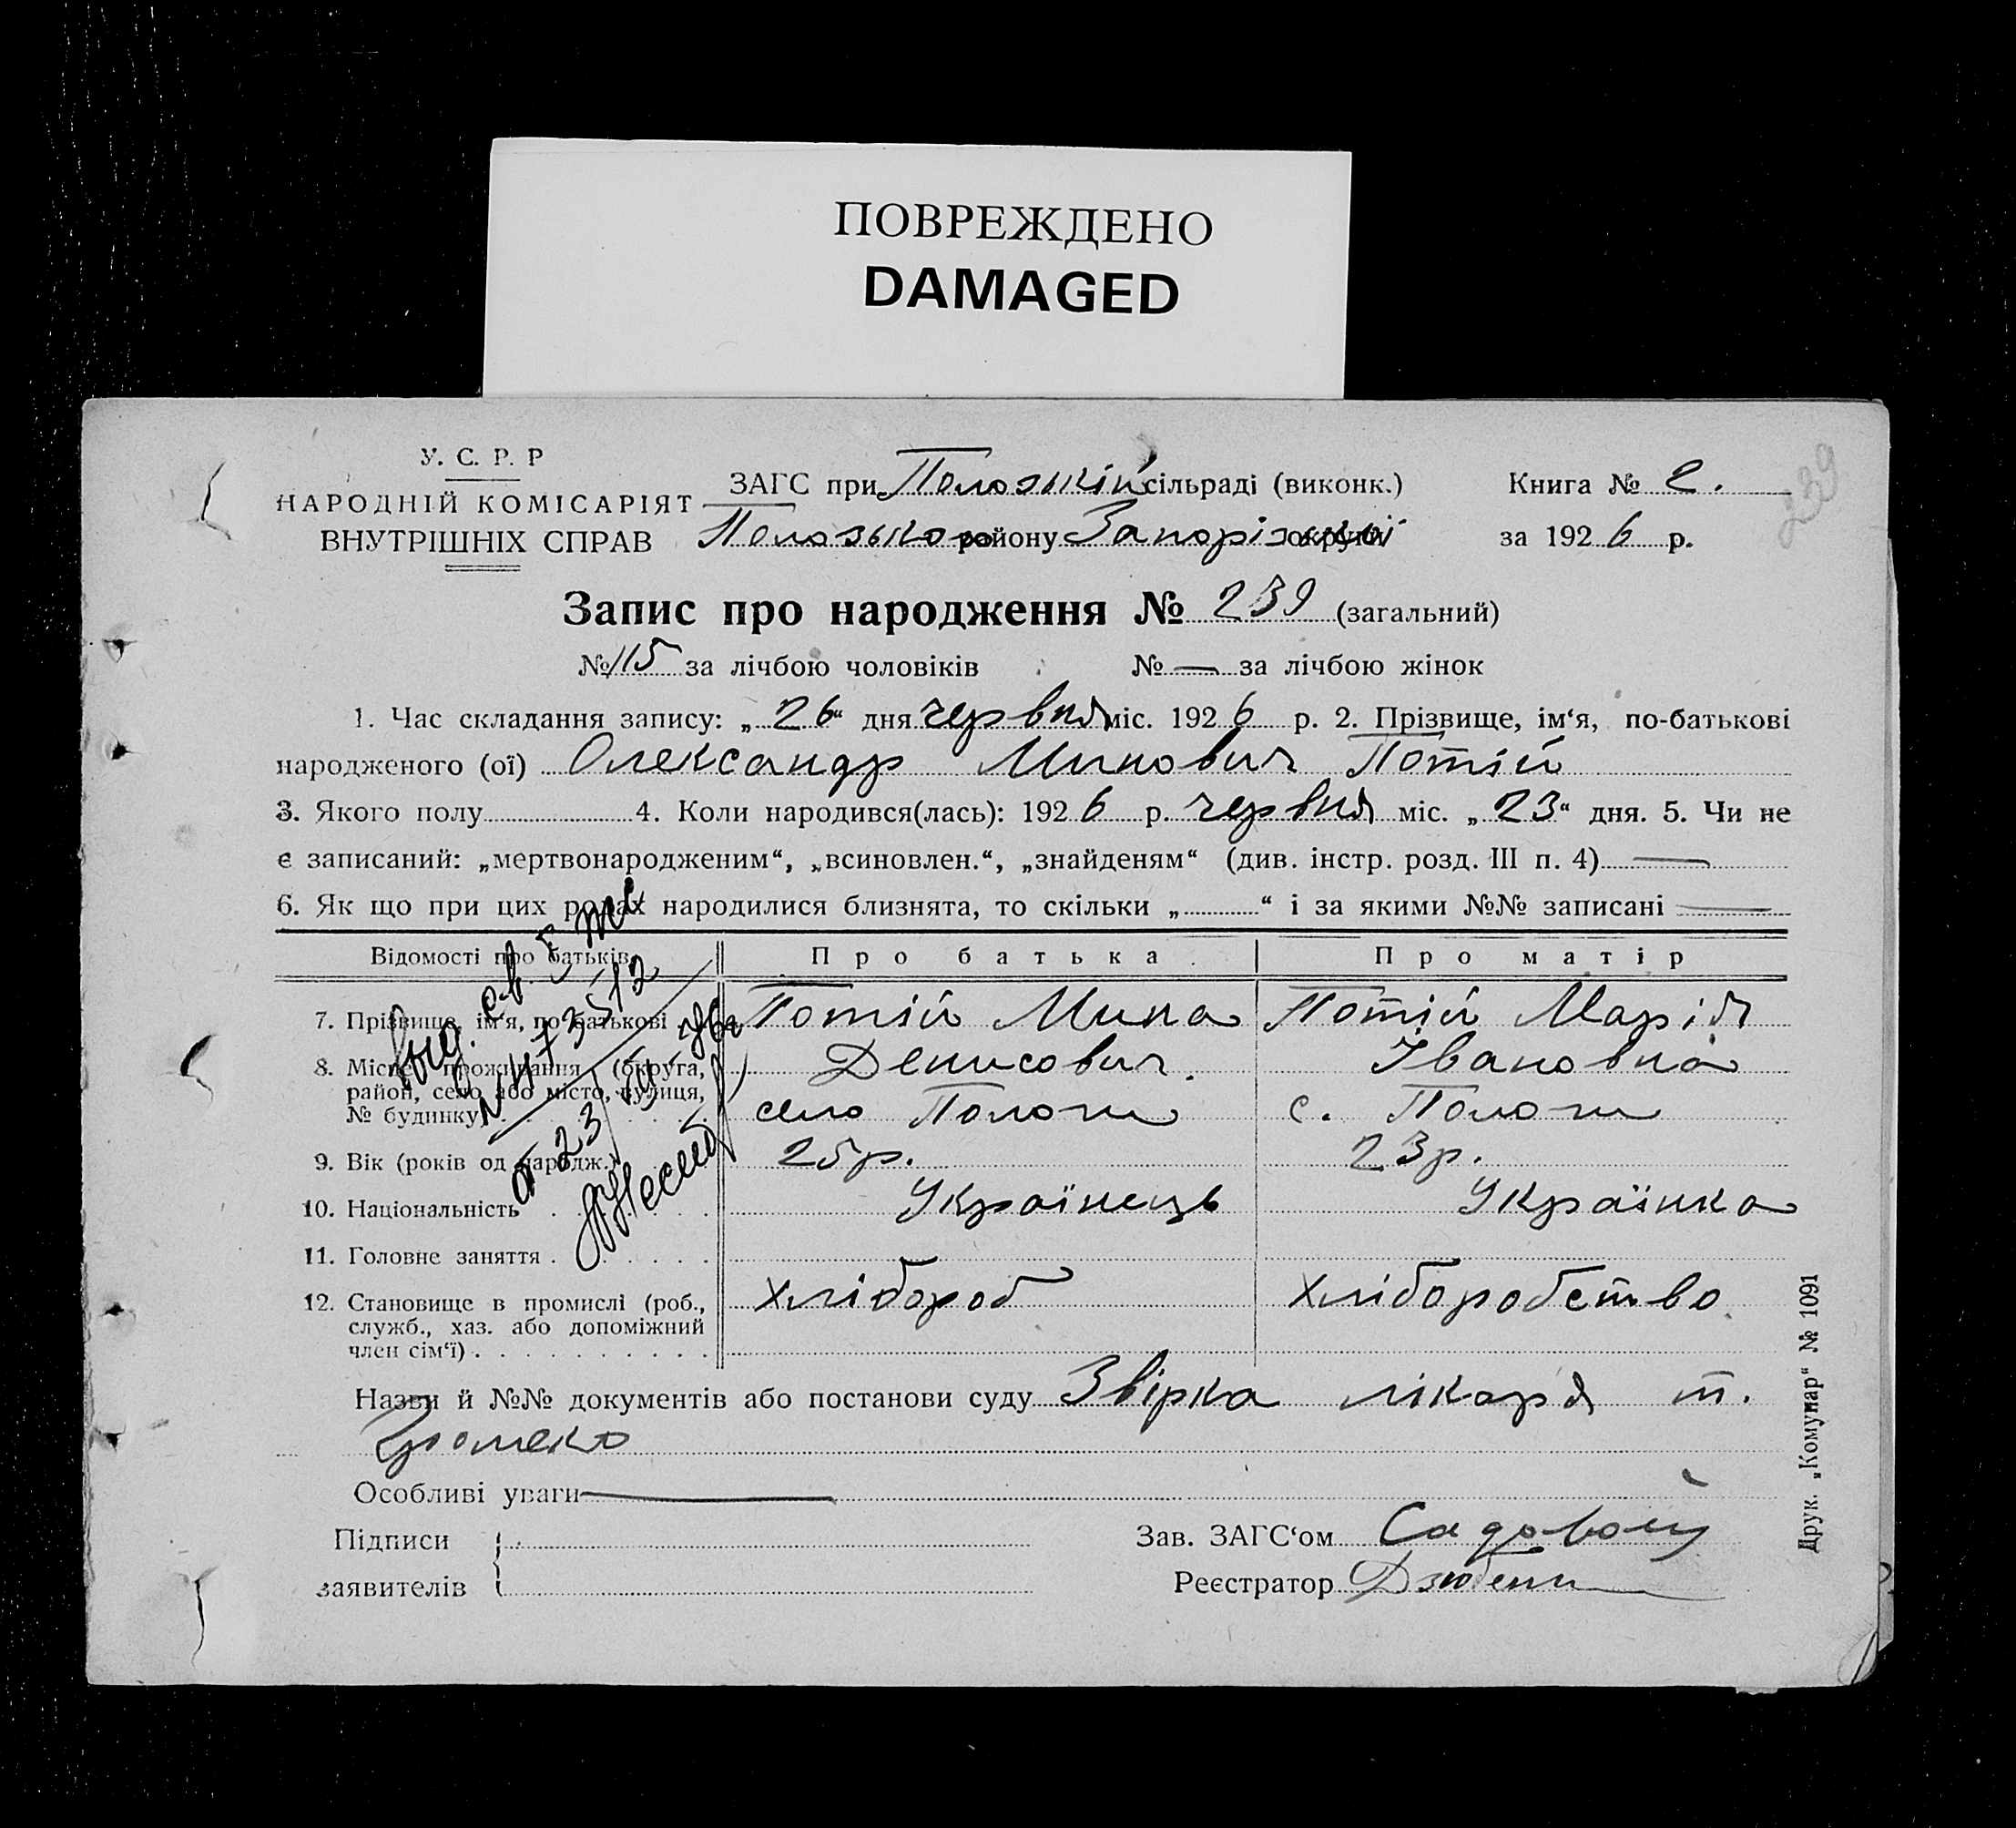 ПОВРЕЖДЕНО
DAMAGED
239
У. С. Р. Р
НАРОДНІЙ КОМІСАРІЯТ
ВНУТРІШНІХ СПРАВ
ЗАГС при Положкій сільраді (виконк.)
Положького району Запорізької округи
Книга № 2.
за 1926 р.
Запис про народження № 239 (загальний)
№ 115 за лічбою чоловіків № — за лічбою жінок
1. Час складання запису: „ 26 “ дня червня міс. 1926 р. 2. Прізвище, ім‘я, по-батькові
народженого (ої) Олександр Минович Потій
3. Якого полу 4. Коли народився(лась): 1926 р. червня міс. „ 23 “ дня. 5. Чи не
є записаний: „мертвонародженим“, „всиновлен.“, „знайденям“ (див. інстр. розд. III п. 4) —
6. Як що при цих родах народилися близнята, то скільки „ “ і за якими №№ записані —
Відомості про батьків Про батька Про матір
7. Прізвище, ім‘я, по-батькові Потій Мина Потій Марія
8. Місце проживання (округа, Денисович. Івановна
район, село або місто, вулиця,
№ будинку) село Пологи с. Пологи
9. Вік (років од народж.) 25р. 23р.
10. Національність Українець Українка
11. Головне заняття
12. Становище в промислі (роб., Хлібороб Хліборобство
служб., хаз. або допоміжний
член сім‘ї)
Назви й №№ документів або постанови суду Звірка лікаря т.
Громеко
Особливі уваги —
Підписи
заявителів
Зав. ЗАГС‘ом Садовой
Реєстратор
Друк. „Комунар“ № 1091